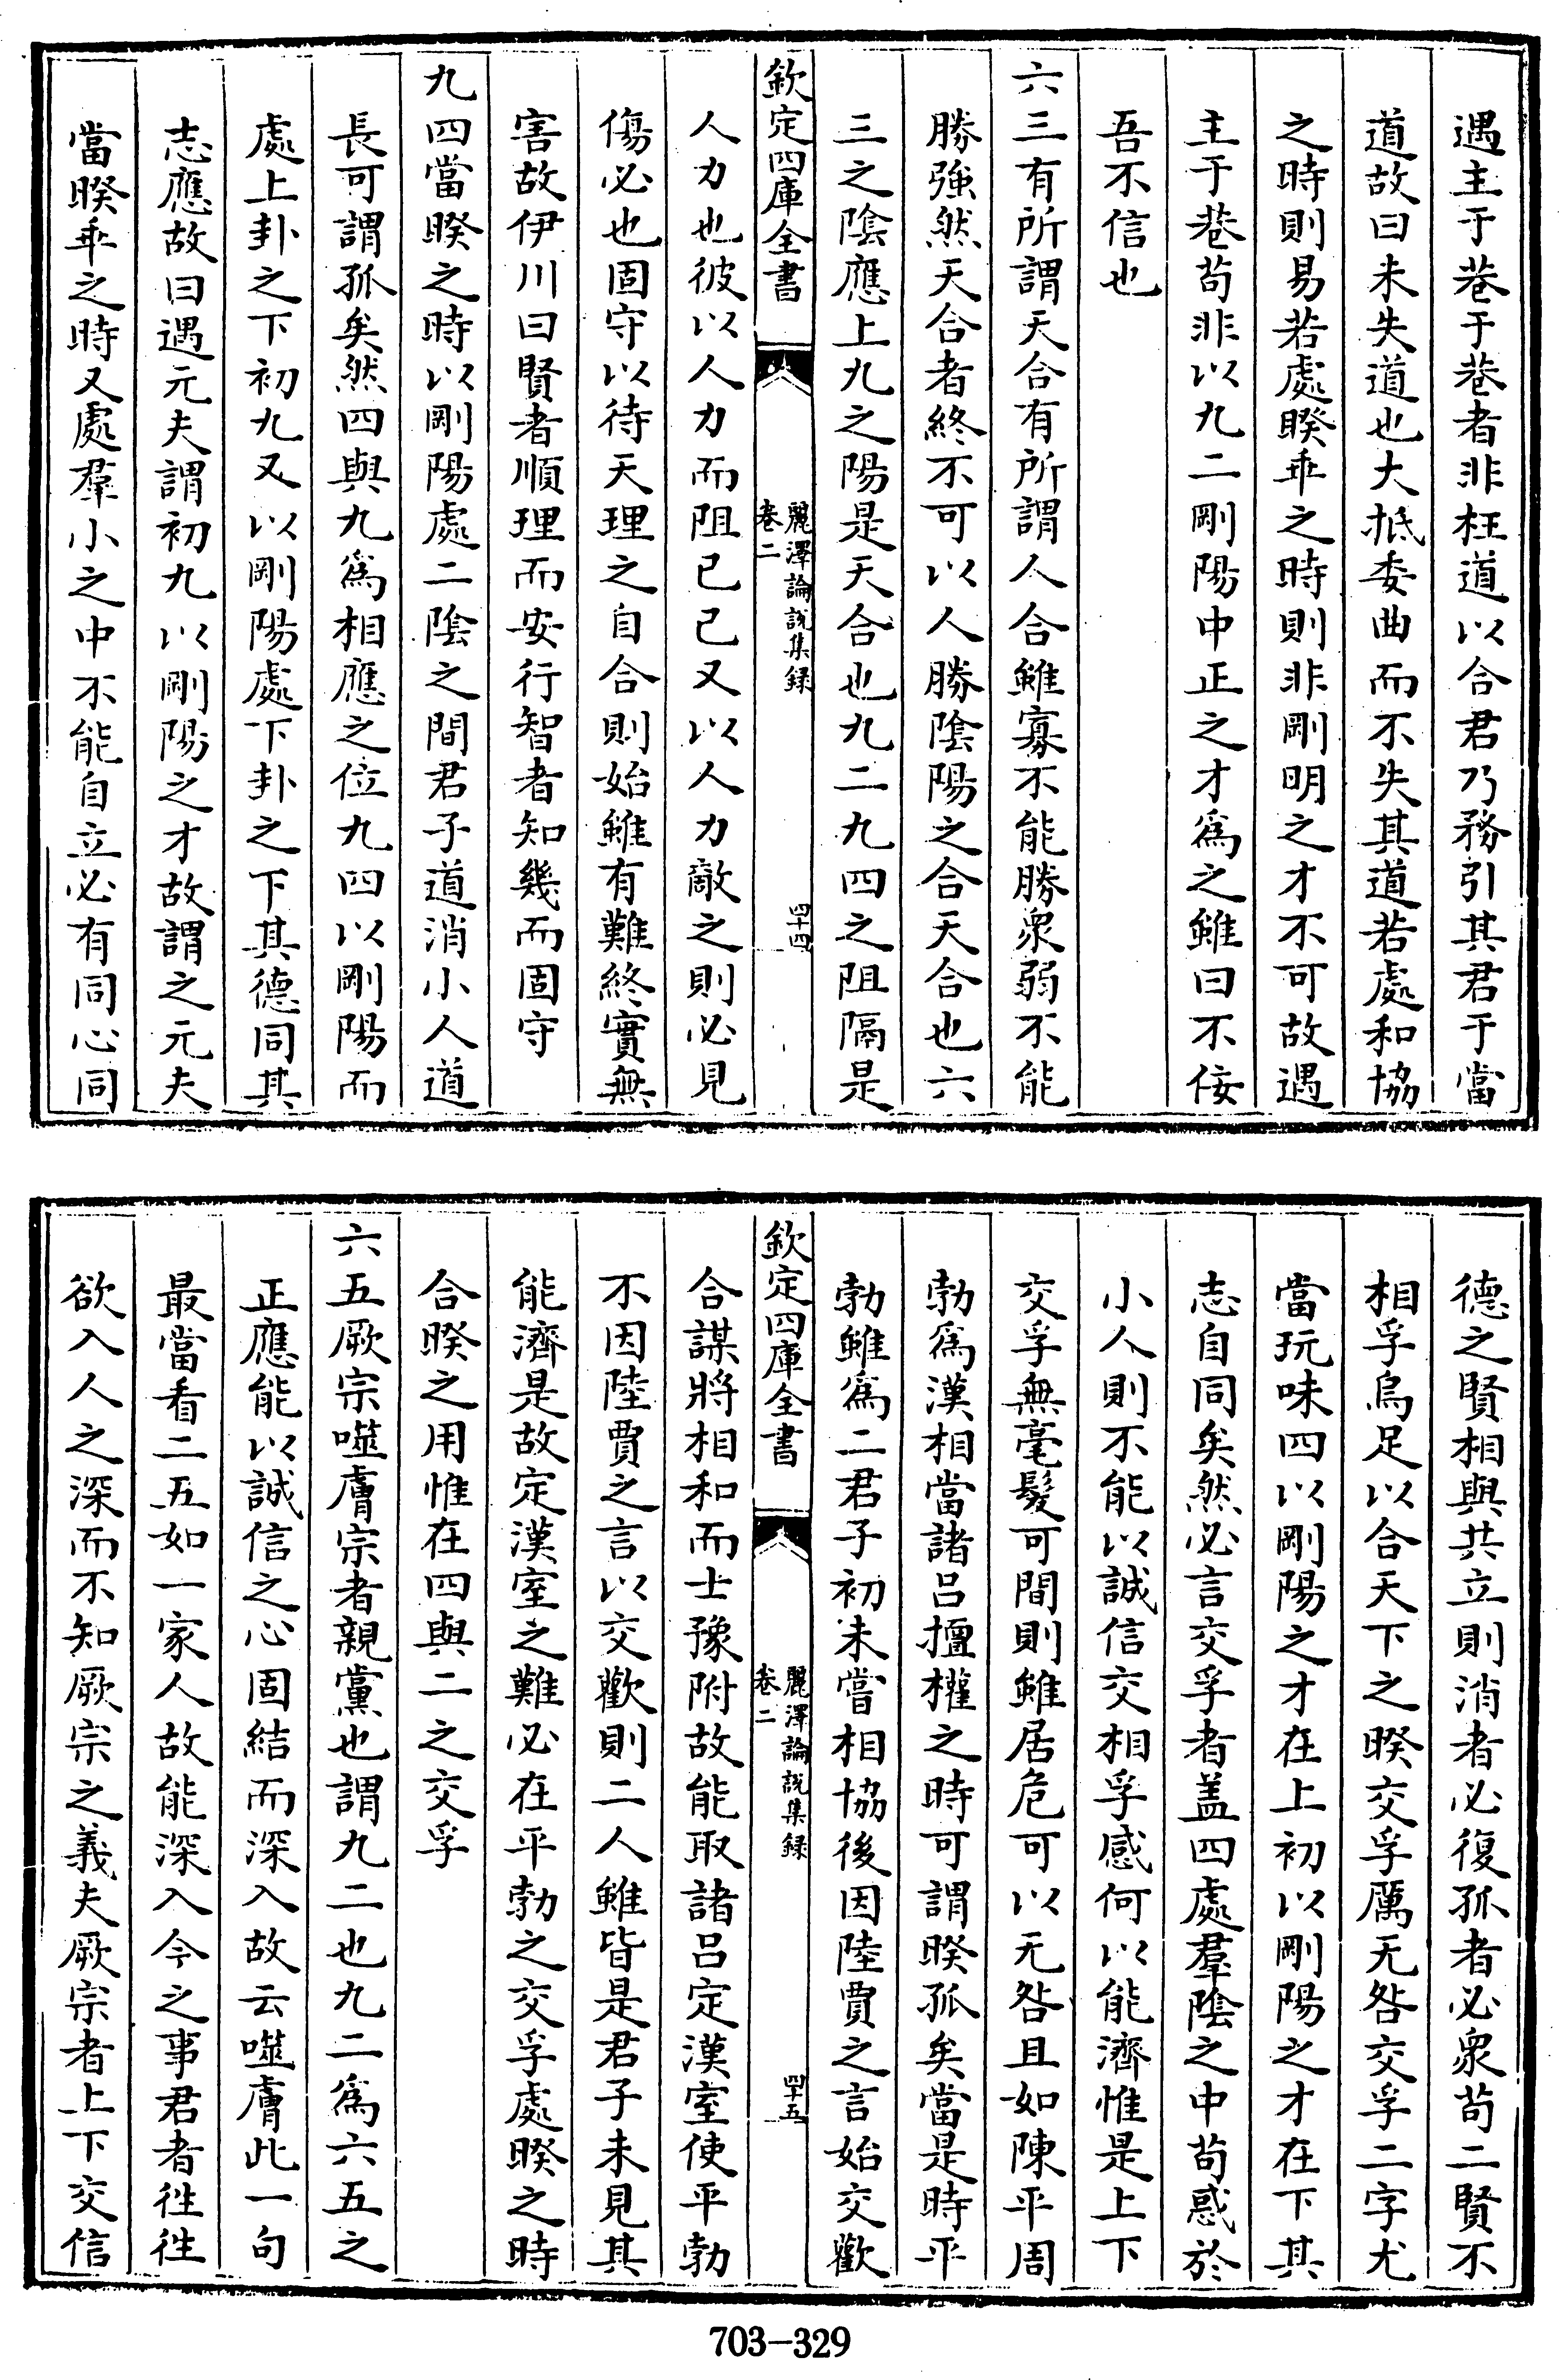 遇主于巷于巷者非枉道以合君乃務引其君于當
道故曰未失道也大抵委曲而不失其道若處和協
之時則易若處睽乖之時則非剛明之才不可故遇
主于巷苟非以九二剛陽中正之才爲之雖曰不佞
吾不信也
六三有所謂天合有所謂人合雖寡不能勝衆弱不能
勝強然天合者終不可以人勝陰陽之合天合也六
三之陰應上九之陽是天合也九二九四之阻隔是
欽定四庫全書
麗澤論說集錄
卷二
四十四
人力也彼以人力而阻已已又以人力敵之則必見
傷必也固守以待天理之自合則始雖有難終實無
害故伊川曰賢者順理而安行智者知幾而固守
九四當睽之時以剛陽處二陰之間君子道消小人道
長可謂孤矣然四與九爲相應之位九四以剛陽而
處上卦之下初九又以剛陽處下卦之下其德同其
志應故曰遇元夫謂初九以剛陽之才故謂之元夫
當睽乖之時又處羣小之中不能自立必有同心同
德之賢相與共立則消者必復孤者必衆苟二賢不
相孚烏足以合天下之睽交孚厲无咎交孚二字尤
當玩味四以剛陽之才在上初以剛陽之才在下其
志自同矣然必言交孚者盖四處羣陰之中苟惑於
小人則不能以誠信交相孚感何以能濟惟是上下
交孚無毫髮可間則雖居危可以无咎且如陳平周
勃爲漢相當諸呂擅權之時可謂睽孤矣當是時平
勃雖爲二君子初未嘗相協後因陸賈之言始交歡
欽定四庫全書
麗澤論說集錄
卷二
四十五
合謀將相和而士豫附故能取諸呂定漢室使平勃
不因陸賈之言以交歡則二人雖皆是君子未見其
能濟是故定漢室之難必在平勃之交孚處睽之時
合睽之用惟在四與二之交孚
六五厥宗噬膚宗者親黨也謂九二也九二爲六五之
正應能以誠信之心固結而深入故云噬膚此一句
最當看二五如一家人故能深入今之事君者徃徃
欲入人之深而不知厥宗之義夫厥宗者上下交信
703-329